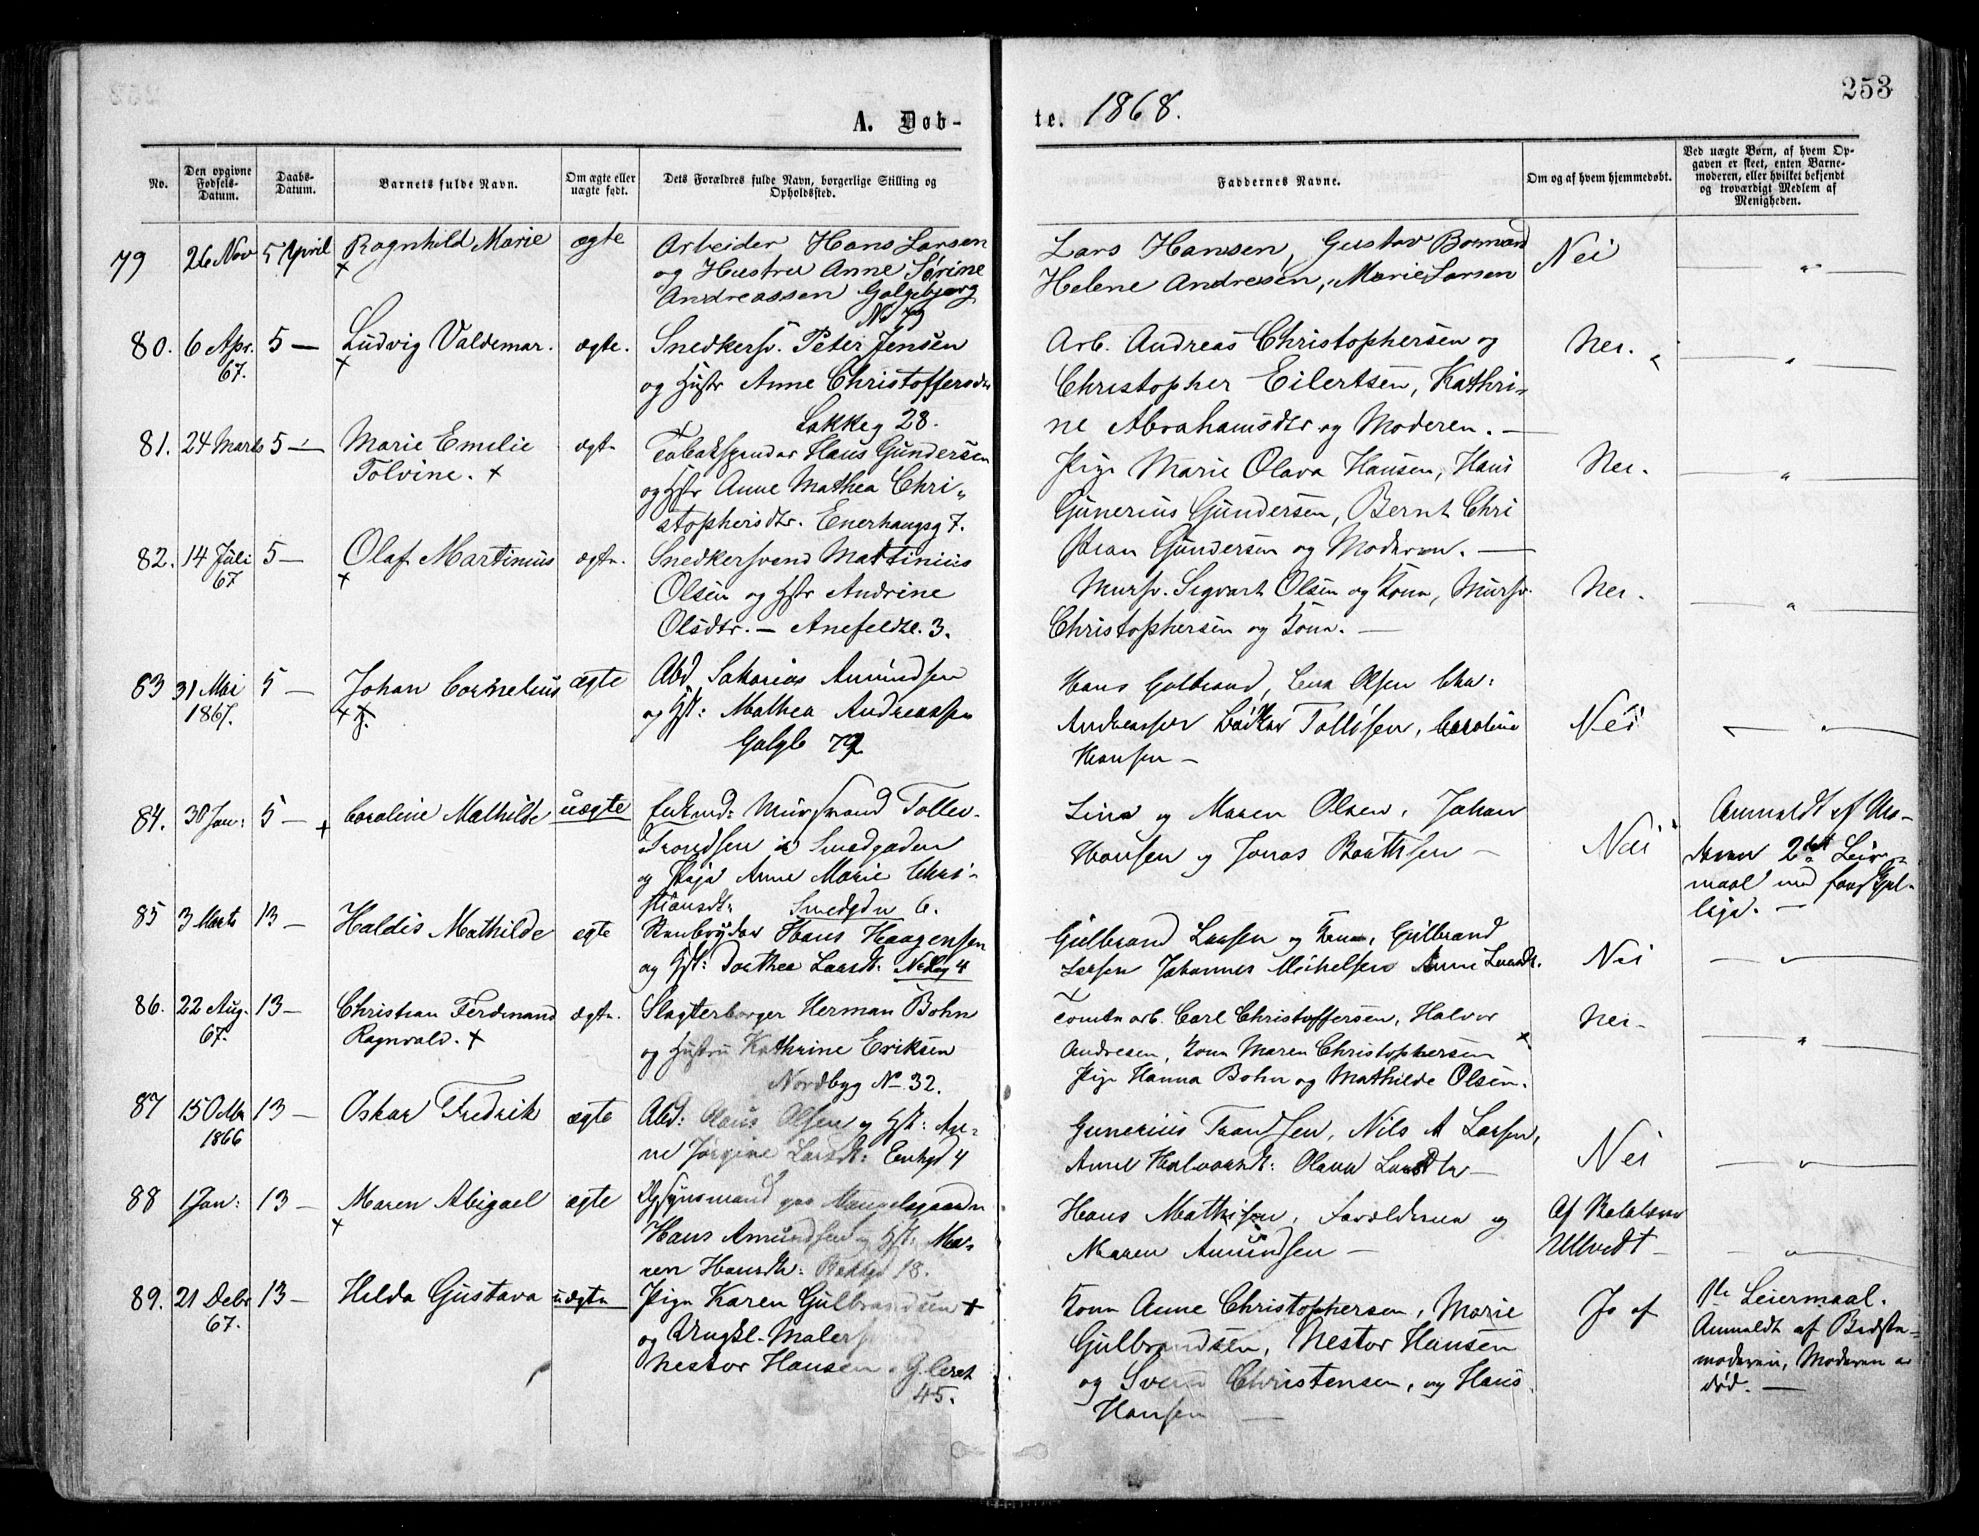 253
A. Døb-
te. 1868.
No.
Den opgivne Fødsels-Datum.
Daabs-Datum.
Barnets fulde Navn.
Om ægte eller uægte født.
Dets Forældres fulde Navn, borgerlige Stilling og Opholdssted.
Faddernes Navne.
Om og af hvem hjemmedøbt.
Ved uægte Børn, af hvem Op-
gaven er skeet, enten Barne-
moderen, eller hvilket bekjendt
og troværdigt Medlem af
Menigheden.
79 26 Nov 5 April Ragnhild Marie ægte Arbeider Hans Larsen
og Hustru Anne Sørine
Andreassen Galgebjerg
No 79
Lars Hansen, Gustav
Helene Andresen, Marie Larsen
Nei
80. 6 Apr. 67. 5 — Ludvig Valdemar. ægte. Snedkersv. Peter Jensen
og Hustr Anne Christoffersdtr
Lakkeg 28.
Arb. Andreas Christophersen og
Christopher Eilertsen, Kathri-
ne Abrahamsdtr og Moderen. —
Nei.
81. 24 Marts 5 — Marie Emilie
Tolvine. +
ægte Tobakspinder Hans Gundersen
og Hstr Anne Mathea Chri-
stophersdtr. Enerhaugsg 7.
Pige Marie Olava Hansen, Hans
Gunerius Gundersen, Bernt Chri
stian Gundersen og Moderen. —
Nei.
82. 14 Juli 67 5 — Olaf Martinius ægte. Snedkersvend Martinius
Olsen og Hstr Andrine
Olsdtr. — Anefeldtl. 3.
Mursv. Sigvart Olsen og Kone, Mursv.
Christophersen og Kone. —
Nei.
83 31 Mai 1867. 5 — Johan Cornelius ægte Abd Sakarias Amundsen
og Hst: Mathea Andreassen
Galgb 79
Hans Gulbrand, Lena Olsen
Andreassen Tollefsen, Caroline
Hansen —
Nei
84. 30 Jan: 5 — + Caroline Mathilde uægte Enkmd: Mursvend Tollev
Trondsen i Smedgaden
og Pige Anne Marie Chri-
stiansdt: Smedgdn 6.
Lina og Maren Olsen, Johan
Hansen og Jonas —
Nei
Anmeldt af Mo-
deren 2det Leier-
maal med
—
85 3 Marts 13 — Haldis Mathilde egte Stenbryder Hans Haagensen
og Hst: Dorthea Larsdt: 4
Gulbrand Larsen og Kone, Gulbrand
Larsen Johannes Mikelsen Anne Larsdt.
Nei
86. 22 Aug. 67. 13 — Christian Ferdinand
Ragnvald. +
ægte. Slagterborger Herman Bohn
og Hustru Kathrine Eriksen
Nordbyg No 32.
Tomtearb. Carl Christoffersen, Halvor
Andresen, Kone Maren Christophersen
Pige Hanna Bohn og Mathilde Olsen.
Nei.
87 15 Octbr 1866 13 — Oskar Fredrik ægte Abd: Olaus Olsen og Hst: An-
ne Jørgine Larsdt: Enhgd 4
Gunerius Trondsen, Nils A Larsen,
Anne Halvorsdt: Olava Larsdtr —
Nei
88 1 Jan: 13 — Maren Abigael ægte Opsynsmand paa Mangelsgaarden
Hans Amundsen og Hst: Ma-
ren Hansdt: 18.
Hans Mathisen, Forældrene og
Maren Amundsen —
Af
Ullvedt —
89. 21 Debr 67. 13 — Hilda Gustava uægte Pige Karen Gulbrandsen +
og Ungkl. Malersvend
Nestor Hansen. G.leret
45.
Kone Anne Christophersen, Marie
Gulbrandsen, Nestor Hansen
og Svend Christensen, og Hans
Hansen —
Ja af
1ste Leiermaal.
Anmeldt af Bedste-
moderen, Moderen er
død. —